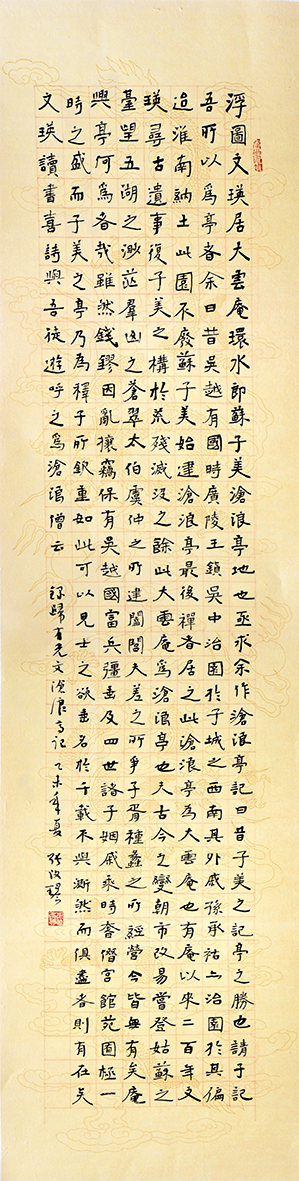 浮圖文瑛居大雲庵環水即蘇子美滄浪亭地也亟求余作滄浪亭記曰昔子美之記亭之勝也請子記
吾所以為亭者余曰昔吳越有國時廣陵王鎮吳中治園於子城之西南其外戚孫承祐亦治園於其偏
迨淮南納土此園不廢蘇子美始建滄浪亭最後禪者居之此滄浪亭為大雲庵也有庵以來二百年文
瑛尋古遺事復子美之構於荒殘滅沒之餘此大雲庵為滄浪亭也夫古今之變朝市改易嘗登姑蘇之
臺望五湖之渺茫羣山之蒼翠太伯虞仲之所建闔閭夫差之所爭子胥種蠡之所經營今皆無有矣庵
與亭何為者哉雖然錢鏐因亂攘竊保有吳越國富兵彊垂及四世諸子姻戚乘時奢僭宮館苑囿極一
時之盛而子美之亭乃為釋子所欽重如此可以見士之欲垂名於千載不與澌然而俱盡者則有在矣
文瑛讀書喜詩與吾徒遊呼之為滄浪僧云 錄歸有光文滄浪亭記 乙未年夏 張